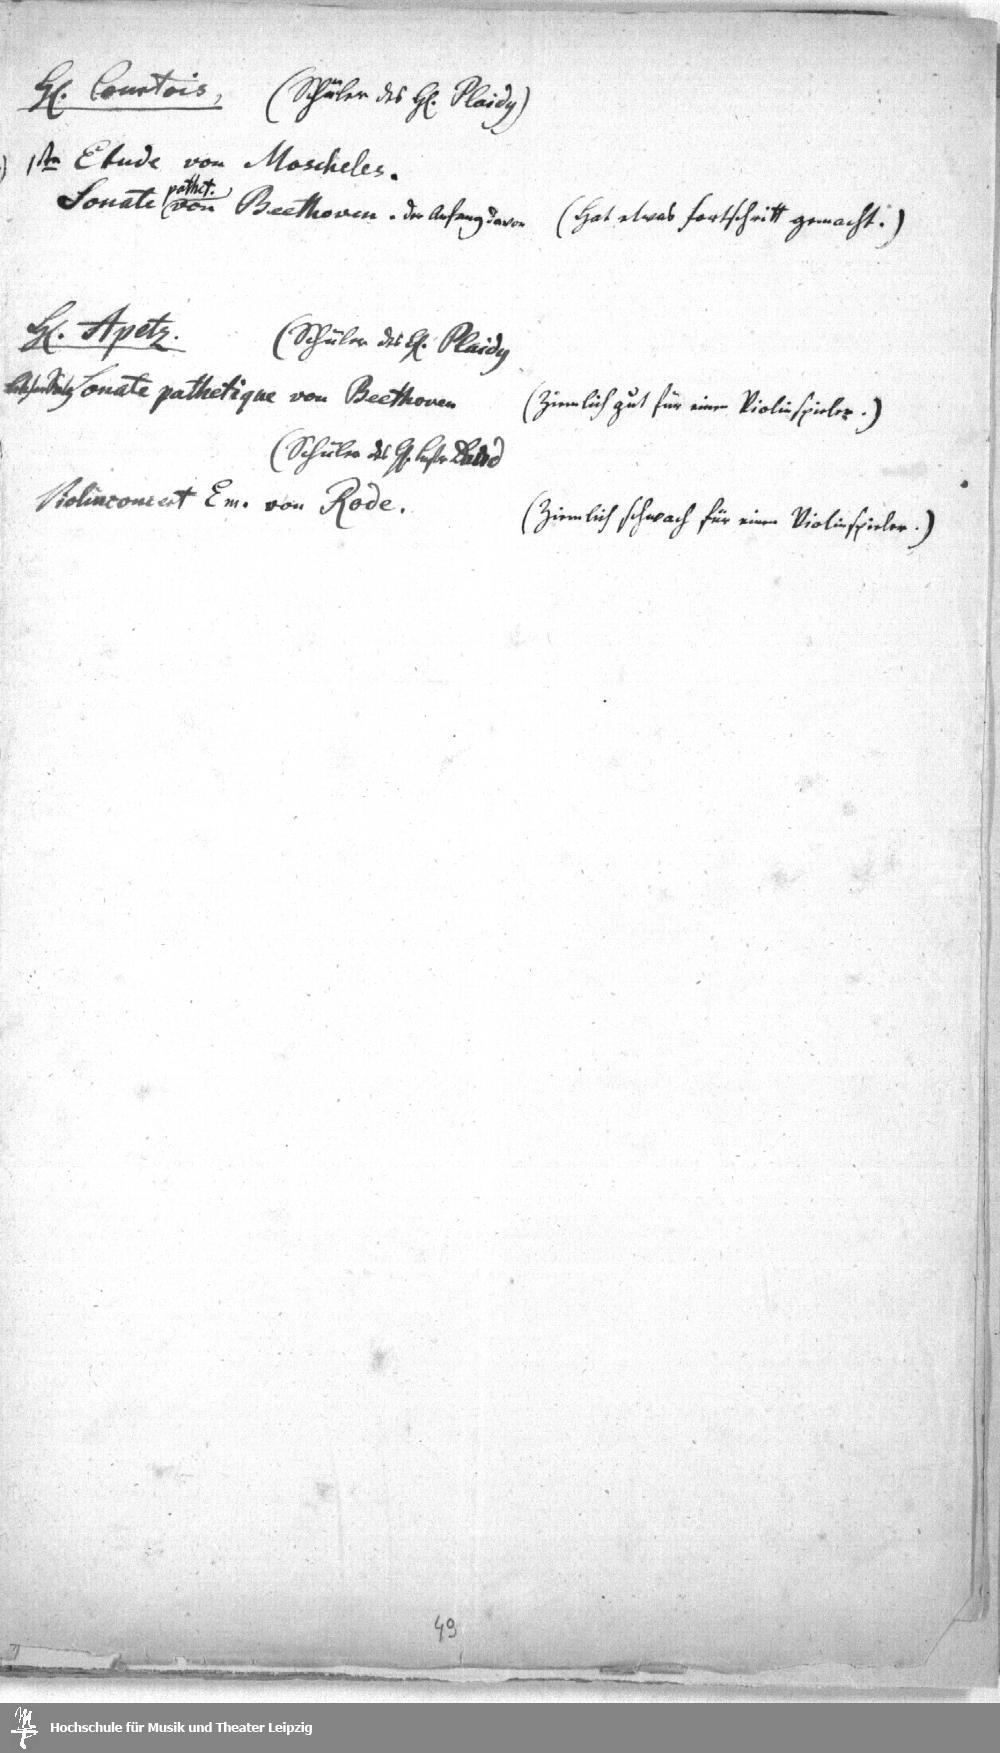 H. Courtois, (Schüler des H. Plaidy)
1ste Etude von Moscheles.
pathet.
Sonate von Beethoven. der Anfang davon (Hat etwas fortschritt gemacht.)
H. Apetz. (Schüler des H. Plaidy
Sonate pathetique von Beethoven (Ziemlich gut für einen Violinspieler.)
(Schüler des H. David
Violinconcert Em. von Rode. (Ziemlich schwach für einen Violinspieler.)
49
Hochschule für Musik und Theater Leipzig